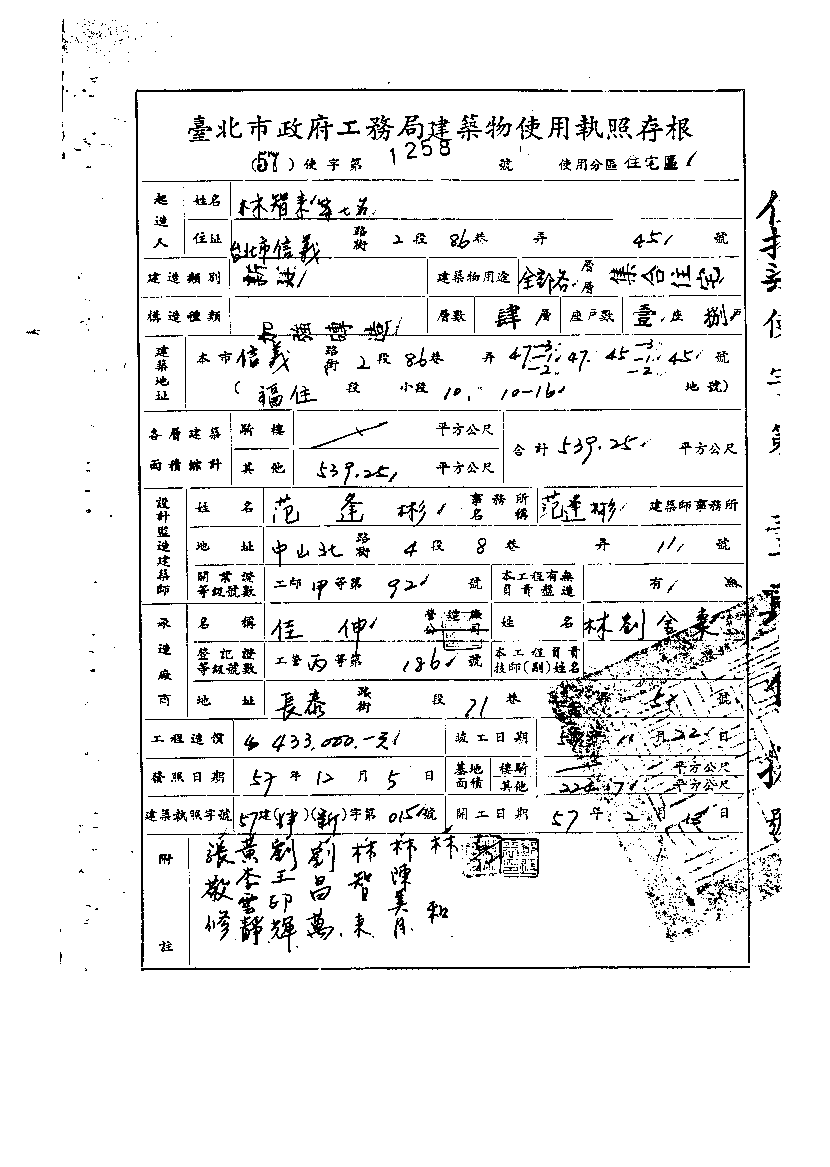 臺北市政府工務局建築物使用執照存根
(57)使字第 1258 號 使用分區 住宅區
起造人 姓名 林智東等七名
住址 台北市信義 路街 2段 86巷 弄 45 號
建造類別 新建 建築物用途 全部各層 集合住宅
構造種類 加強磚造 層數 肆 層 座戶數 壹座 捌戶
建築地址 本市 信義 路街 2段 86巷 弄 47-1-2-3 47. 45-1-2-3 45 號
(福住 段 小段 10, 10-16 地號)
各層建築面積總計 騎樓 平方公尺 合計 539.25 平方公尺
其他 539.25 平方公尺
設計監造建築師 姓名 范逢彬 事務所名稱 范逢彬 建築師事務所
地址 中山北 路街 4段 8巷 弄 11 號
開業證等級號數 工師甲等第 92 號 本工程有無負責監造 有 無
承造廠商 名稱 佳伸 營造廠公司 姓名 林劉金東
登記證等級號數 工營丙等第 186 號 本工程負責技師(副)姓名
地址 長泰 路街 段 21巷 號
工程造價 433,000.-元 竣工日期 11月22日
發照日期 57年12月5日 基地面積 騎樓 平方公尺
其他 平方公尺
建築執照字號 57建( )(新)字第 015 號 開工日期 57年2月 日
附註 張敬修 黃李雲靜 劉王印輝 劉昌萬 林智東 林陳美月 林 和